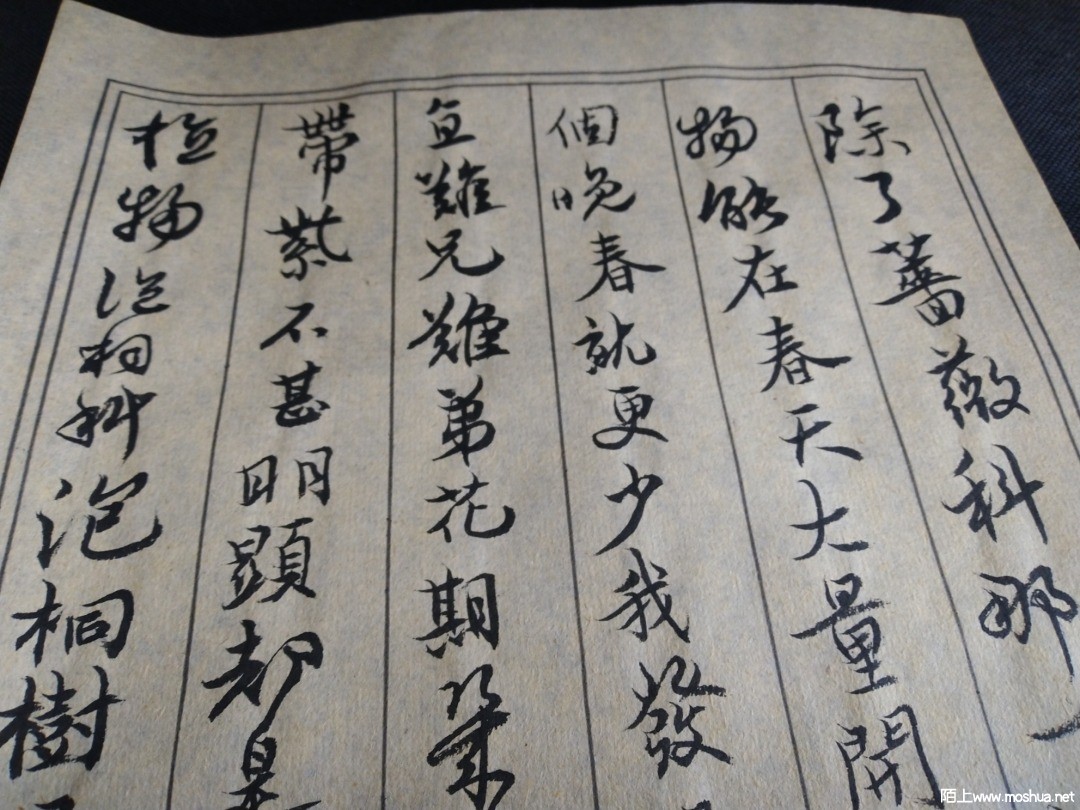 除了薔薇科那
物能在春天大量開
個晚春就更少我發
互難兄難弟花期幾
帶紫不甚明顯却是
植物泡桐科泡桐樹
陌上www.moshua.net